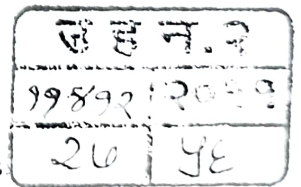 उ ह न. २
११४१२ २०११
२७ ५६